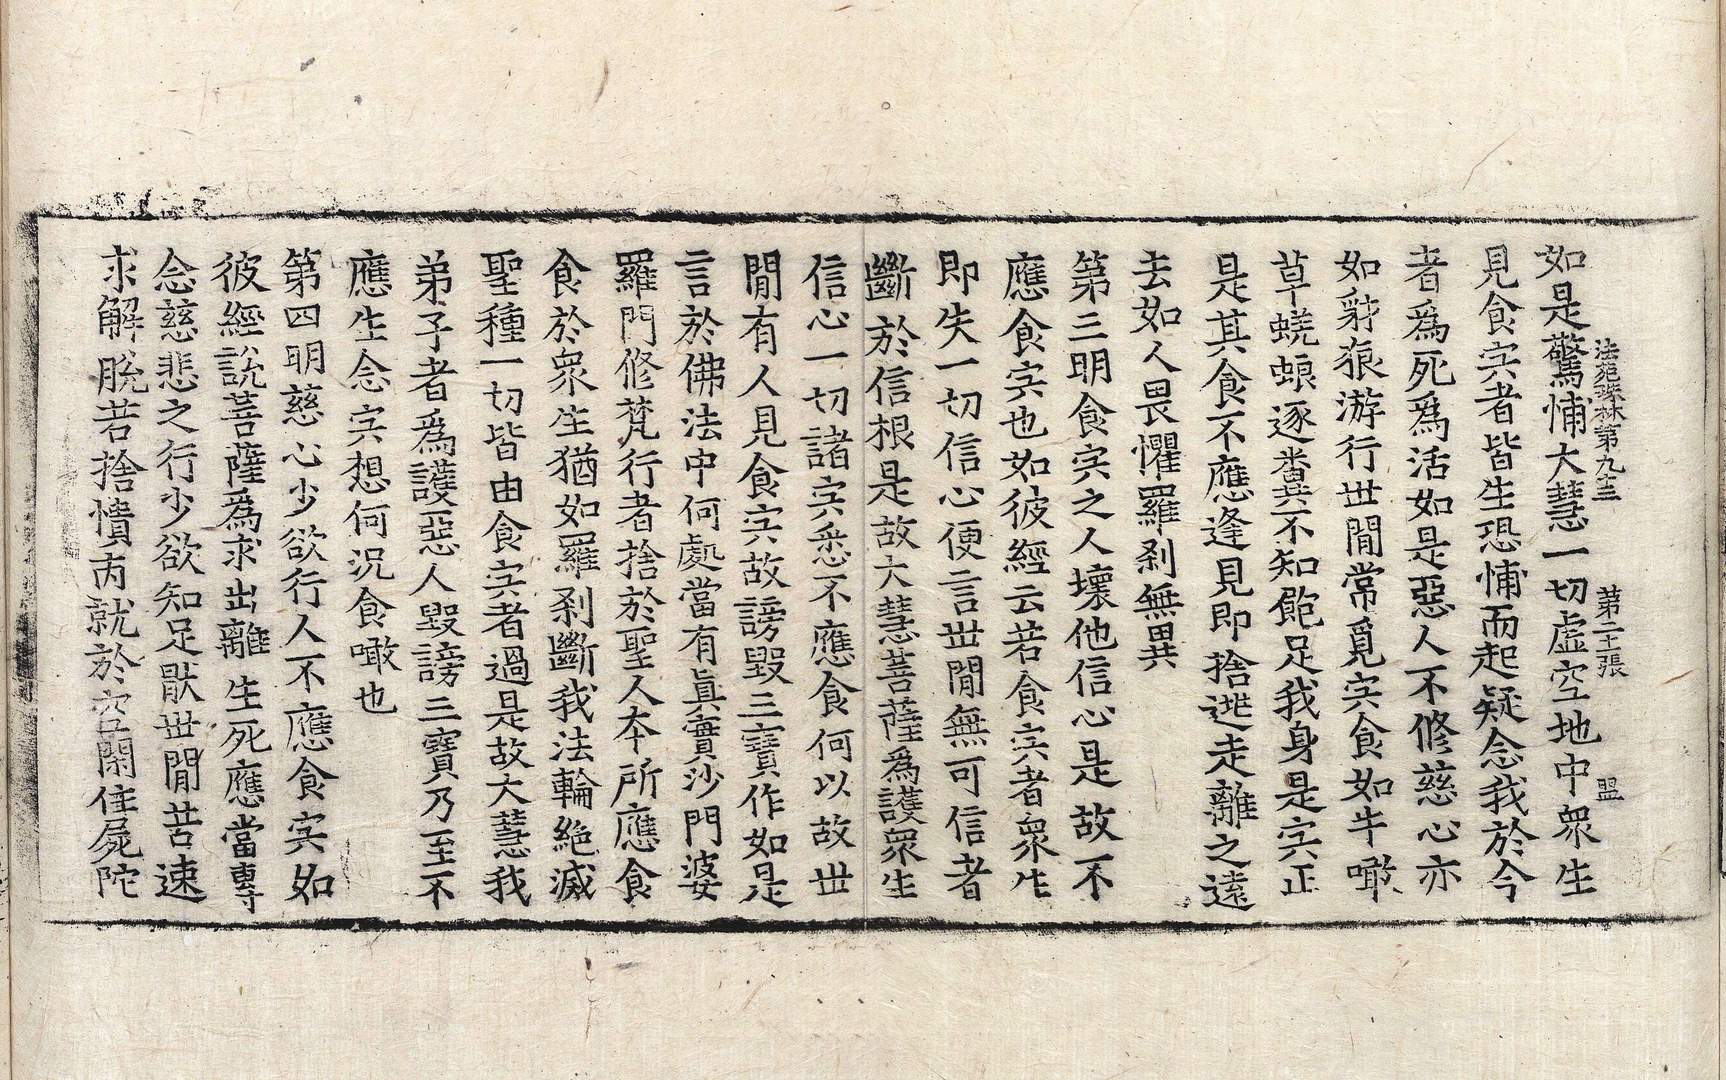 法苑珠林第九十三 第二十張 盈
如是驚怖大慧一切虛空地中眾生
見食宍者皆生恐怖而起疑念我於今
者為死為活如是惡人不修慈心亦
如豺狼游行世間常覓宍食如牛噉
草蜣蜋逐糞不知飽足我身是宍正
是其食不應逢見即捨逃走離之遠
去如人畏懼羅剎無異
第三明食宍之人壞他信心是故不
應食宍也如彼經云若食宍者眾生
即失一切信心便言世間無可信者
斷於信根是故大慧菩薩為護眾生
信心一切諸宍悉不應食何以故世
間有人見食宍故謗毀三寶作如是
言於佛法中何處當有真實沙門婆
羅門修梵行者捨於聖人本所應食
食於眾生猶如羅剎斷我法輪絕滅
聖種一切皆由食宍者過是故大慧我
弟子者為護惡人毀謗三寶乃至不
應生念宍想何況食噉也
第四明慈心少欲行人不應食宍如
彼經說菩薩為求出離生死應當專
念慈悲之行少欲知足厭世間苦速
求解脫若捨憒丙就於空閑住屍陀